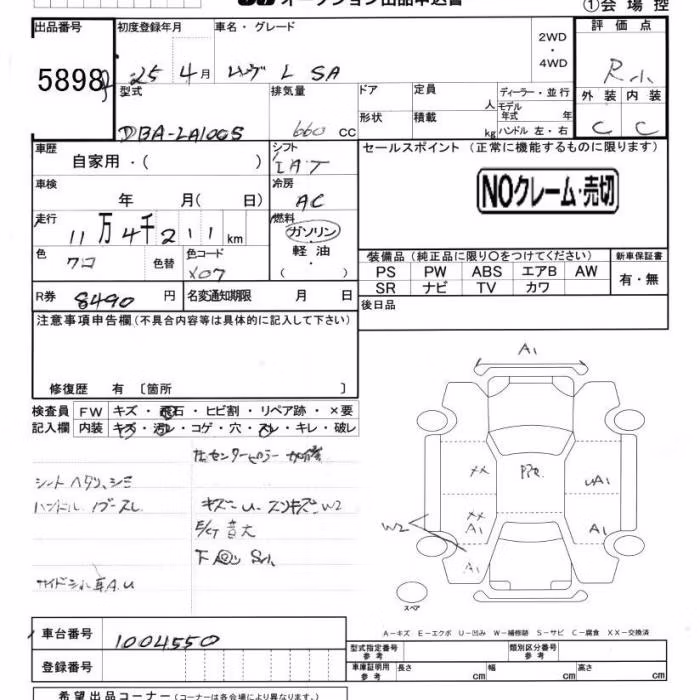 オークション出品申込書
①会場控
出品番号
5898
初度登録年月
車名・グレード
25 4月
ムーヴ L SA
2WD
・
4WD
評価点
R小
外装 内装
C C
型式
DBA-LA100S
排気量
660 CC
ドア
形状
定員
人
積載
kg
ディーラー・並行
モデル年式 年
ハンドル 左・右
車歴
自家用・( )
シフト
IAT
車検
年 月( 日)
冷房
AC
走行
11万4千211km
燃料
ガソリン
・
軽油
・
( )
色
クロ
色替
色コード
X07
R券
8490 円
名変通知期限 月 日
セールスポイント (正常に機能するものに限ります)
NOクレーム・売切
装備品 (純正品に限り○をつけてください)
PS PW ABS エアB AW
SR ナビ TV カワ
新車保証書
有・無
後日品
注意事項申告欄(不具合内容等は具体的に記入して下さい)
修復歴 有 〔箇所 〕
検査員
記入欄
FW キズ・飛石・ヒビ割・リペア跡・×要
内装 キズ・汚レ・コゲ・穴・スレ・キレ・破レ
左センターピラー
シートヘタリ、シミ
ハンドル
キズ
W2
E/G 音大
サイドシル
A.U
A1
XX
UA1
XX
A1
A1
W2
A1
スペア
A−キズ E−エクボ U−凹み W−補修跡 S−サビ C−腐食 XX−交換済
車台番号
1004550
登録番号
型式指定番号
参考
類別区分番号
参考
車庫証明用
参考
長さ cm
幅 cm
高さ cm
希望出品コーナー(コーナーは各会場により異なります)